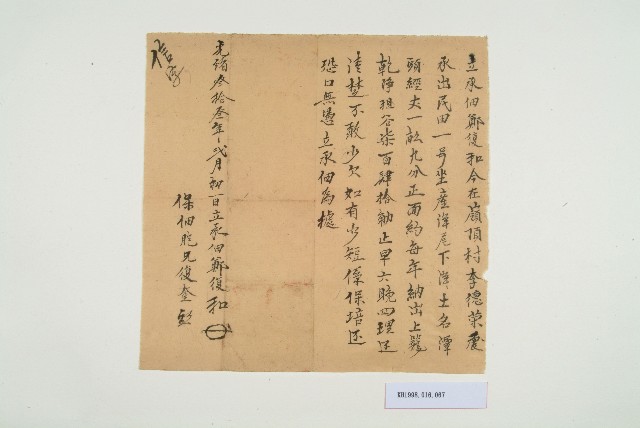 立承佃鄭復和今在嶺頂村李德榮處
承出民田一号坐產洋尾下洋土名潭
頭經丈一畝九分正面約每年納出上
乾淨租谷柒百肆拾觔正早六晚四理还
清楚不敢少欠如有少短係保培还
恐口無憑立承佃為據
光緒叁拾叁年弍月初一日立承佃鄭復和
保佃胞兄復奎
KH1998.516.067